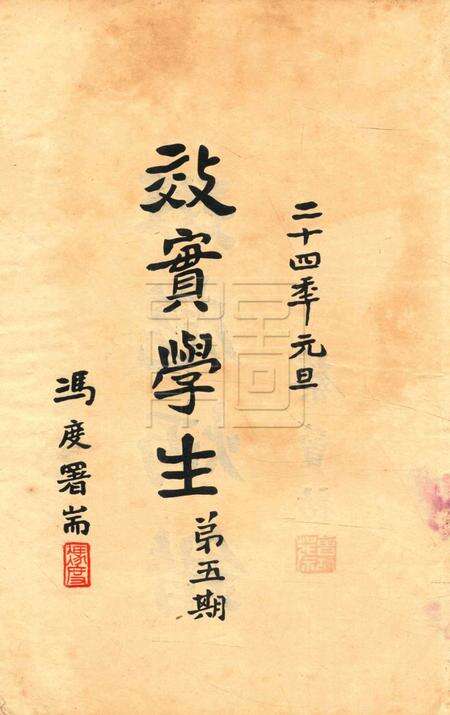 二十四年元旦
效實學生
第五期
馮度署耑
馮度